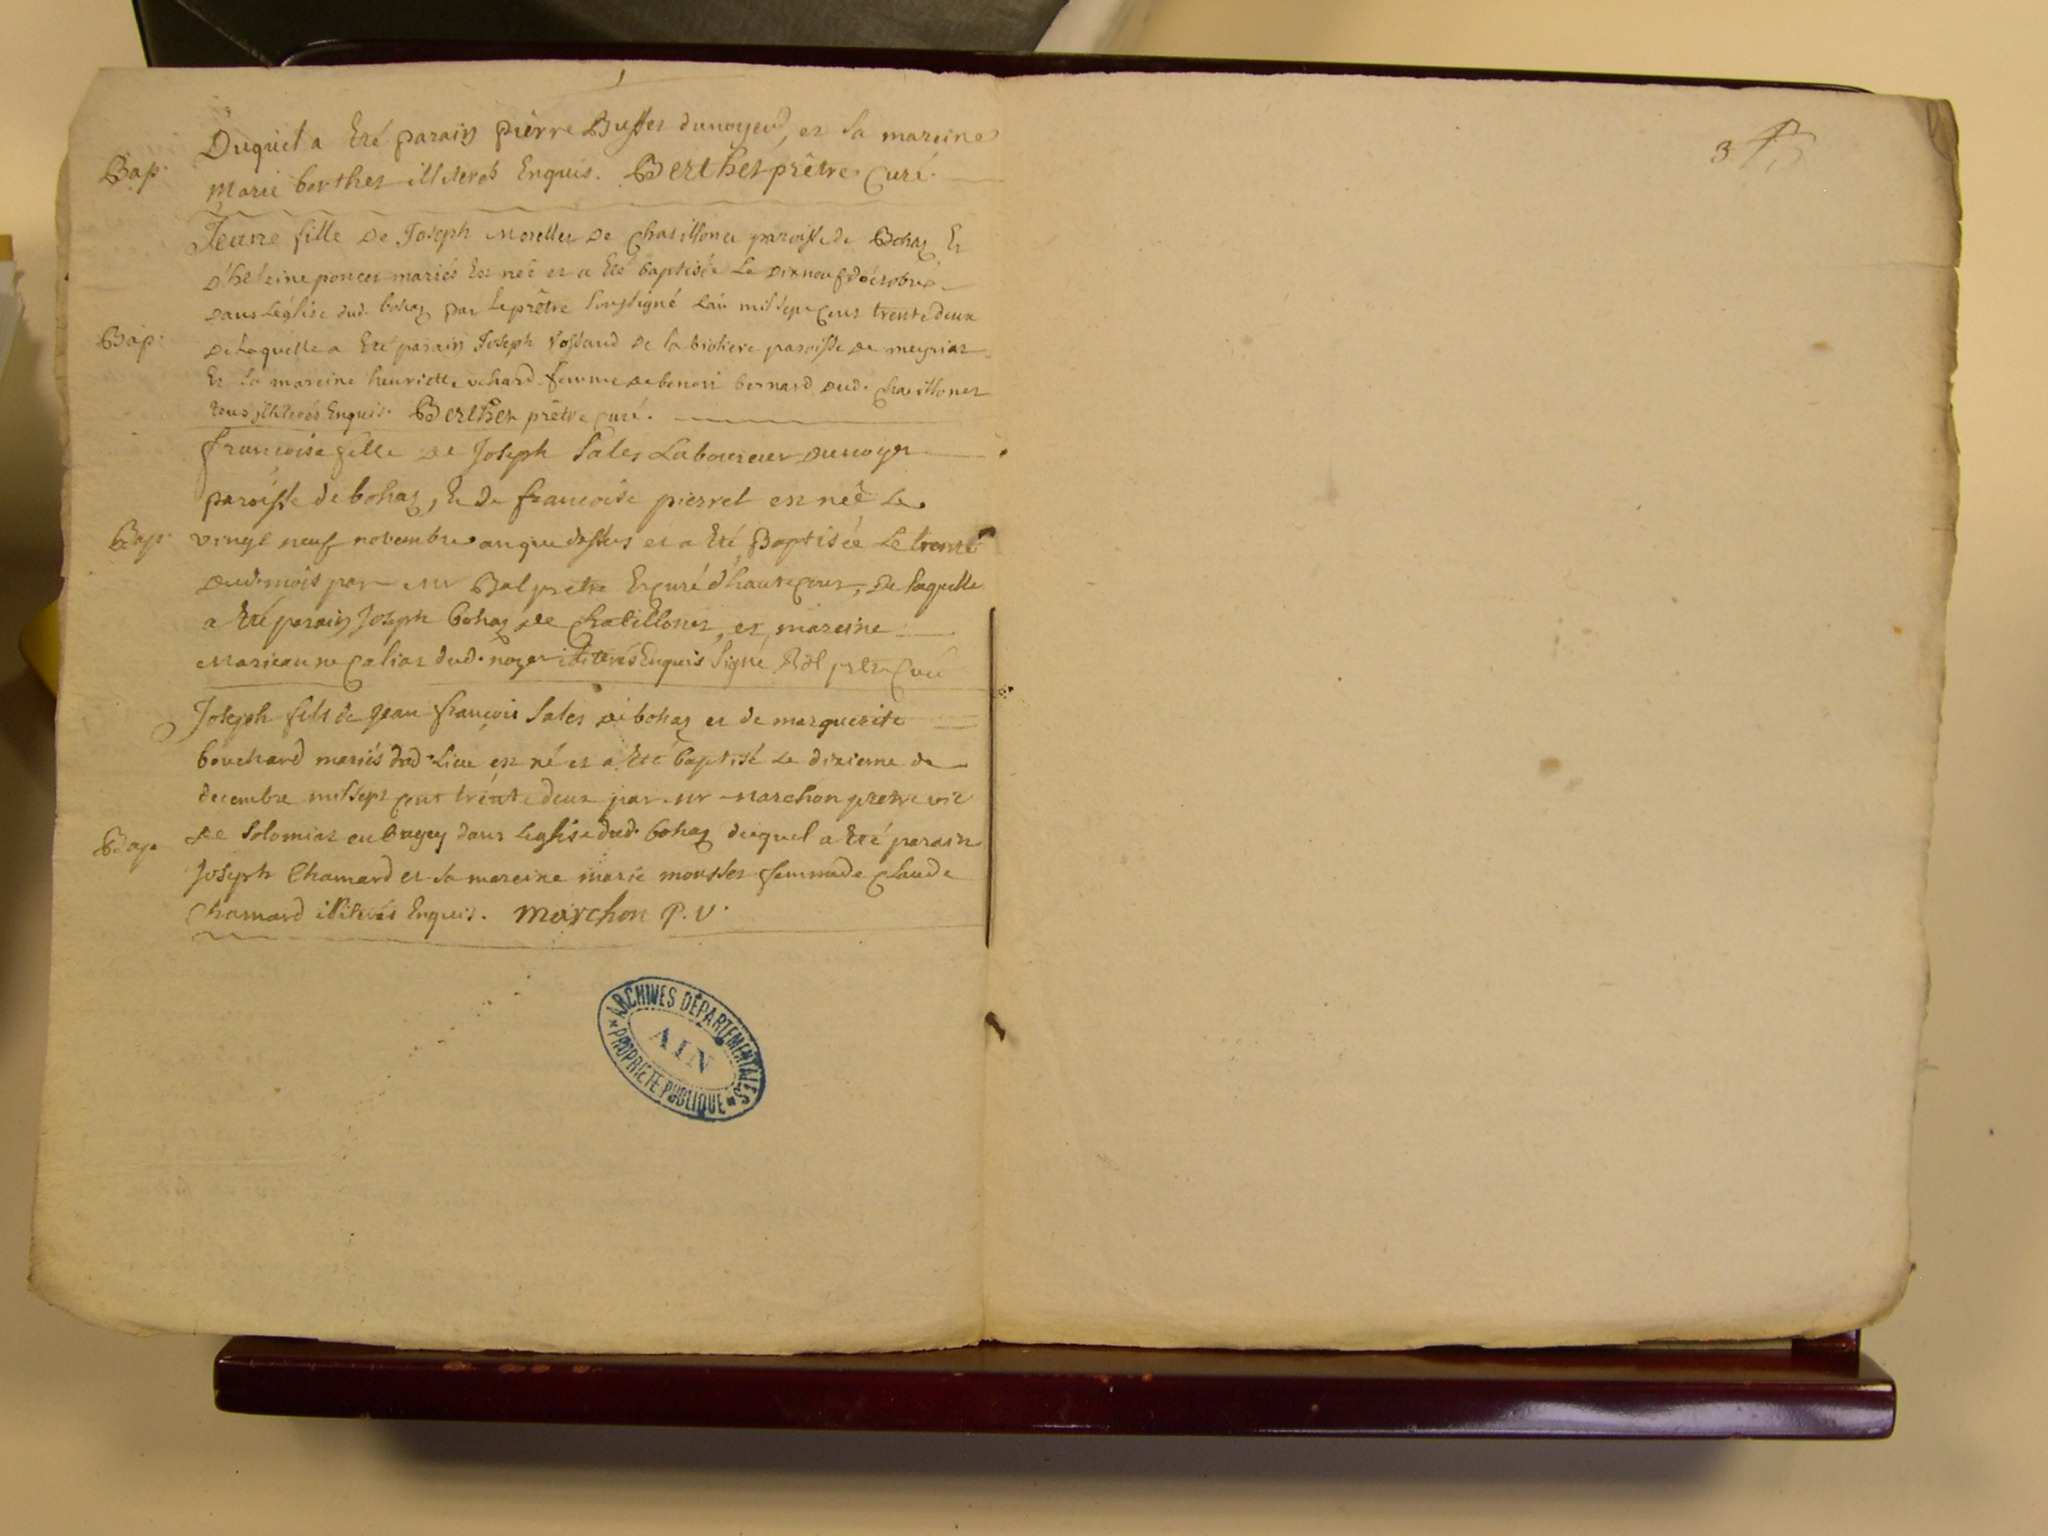 3
Duquel a Eté parain pierre Buffet dunoyer, et la mareine
Bap.
marie berthet illiterés Enquis. Berthet prêtre Curé.
Jeanne fille de Joseph morellet de Chatillonet paroisse de Bohaz Et
d'heleine poncet mariés Est née et a Eté baptisée Le dixneuf octobre
dans Léglise dud. bohaz par Le prêtre soussigné Lan mil sept cent trente deux
Bap.
de Laquelle a Eté parain Joseph de la paroisse de meyriat
Et la mareine henriette femme de benoit bernard dud. Chatillonet
tous illiterés Enquis. Berthet prêtre curé.
francoise fille de Joseph Salet Laboureur dunoyer
paroisse de bohaz, Et de francoise pierret est née Le
Bap.
vingt neuf novembre an que dessus et a Eté Baptisée Le trente
dud. mois par mr Bal pretre Et curé d'hautecour, de laquelle
a Eté parain Joseph bohaz de Chatillonet, et mareine
marieanne dud. noyer illiterés Enquis Signé Bal ptre Curé
Joseph fils de Jean francois Salet de bohaz et de marguerite
bouchard mariés dud. Lieu est né et a Eté baptisé Le dixieme de
decembre mil sept cent trente deux par mr marchon pretre vic
Bap.
de Solomiat en bugey dans Leglise dud. bohaz duquel a Eté parain
Joseph Chamard et la mareine marie femme de Claude
Chamard illiterés Enquis. marchon P. V.
ARCHIVES DÉPARTEMENTALES
AIN
PROPRIÉTÉ PUBLIQUE